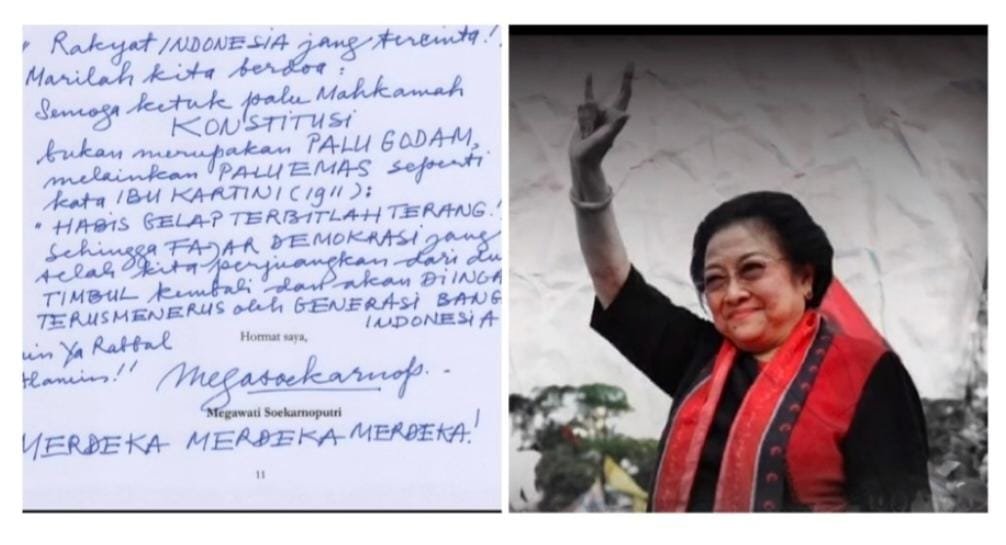 " Rakyat INDONESIA jang tercinta!
Marilah kita berdoa :
Semoga ketuk palu Mahkamah
KONSTITUSI
bukan merupakan PALU GODAM,
melainkan PALU EMAS seperti
kata IBU KARTINI (1911):
" HABIS GELAP TERBITLAH TERANG.!
Sehingga FAJAR DEMOKRASI jang
telah kita perjuangkan dari du
TIMBUL kembali dan akan DIINGA
TERUSMENERUS oleh GENERASI BANG
INDONESIA
in Ya Rabbal
Hormat saya,
lamin!!
Megawati Soekarnoputri
MERDEKA MERDEKA MERDEKA!
11